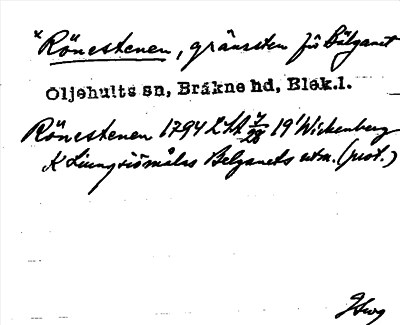 *Rönestenen, gränssten för Bälganet
Oljehults sn, Bräkne hd, Blek.l.
Rönestenen 1794 LSA 7/28 19' Wickenberg
K Ljungsiömålas Belganets utm. (prot.)